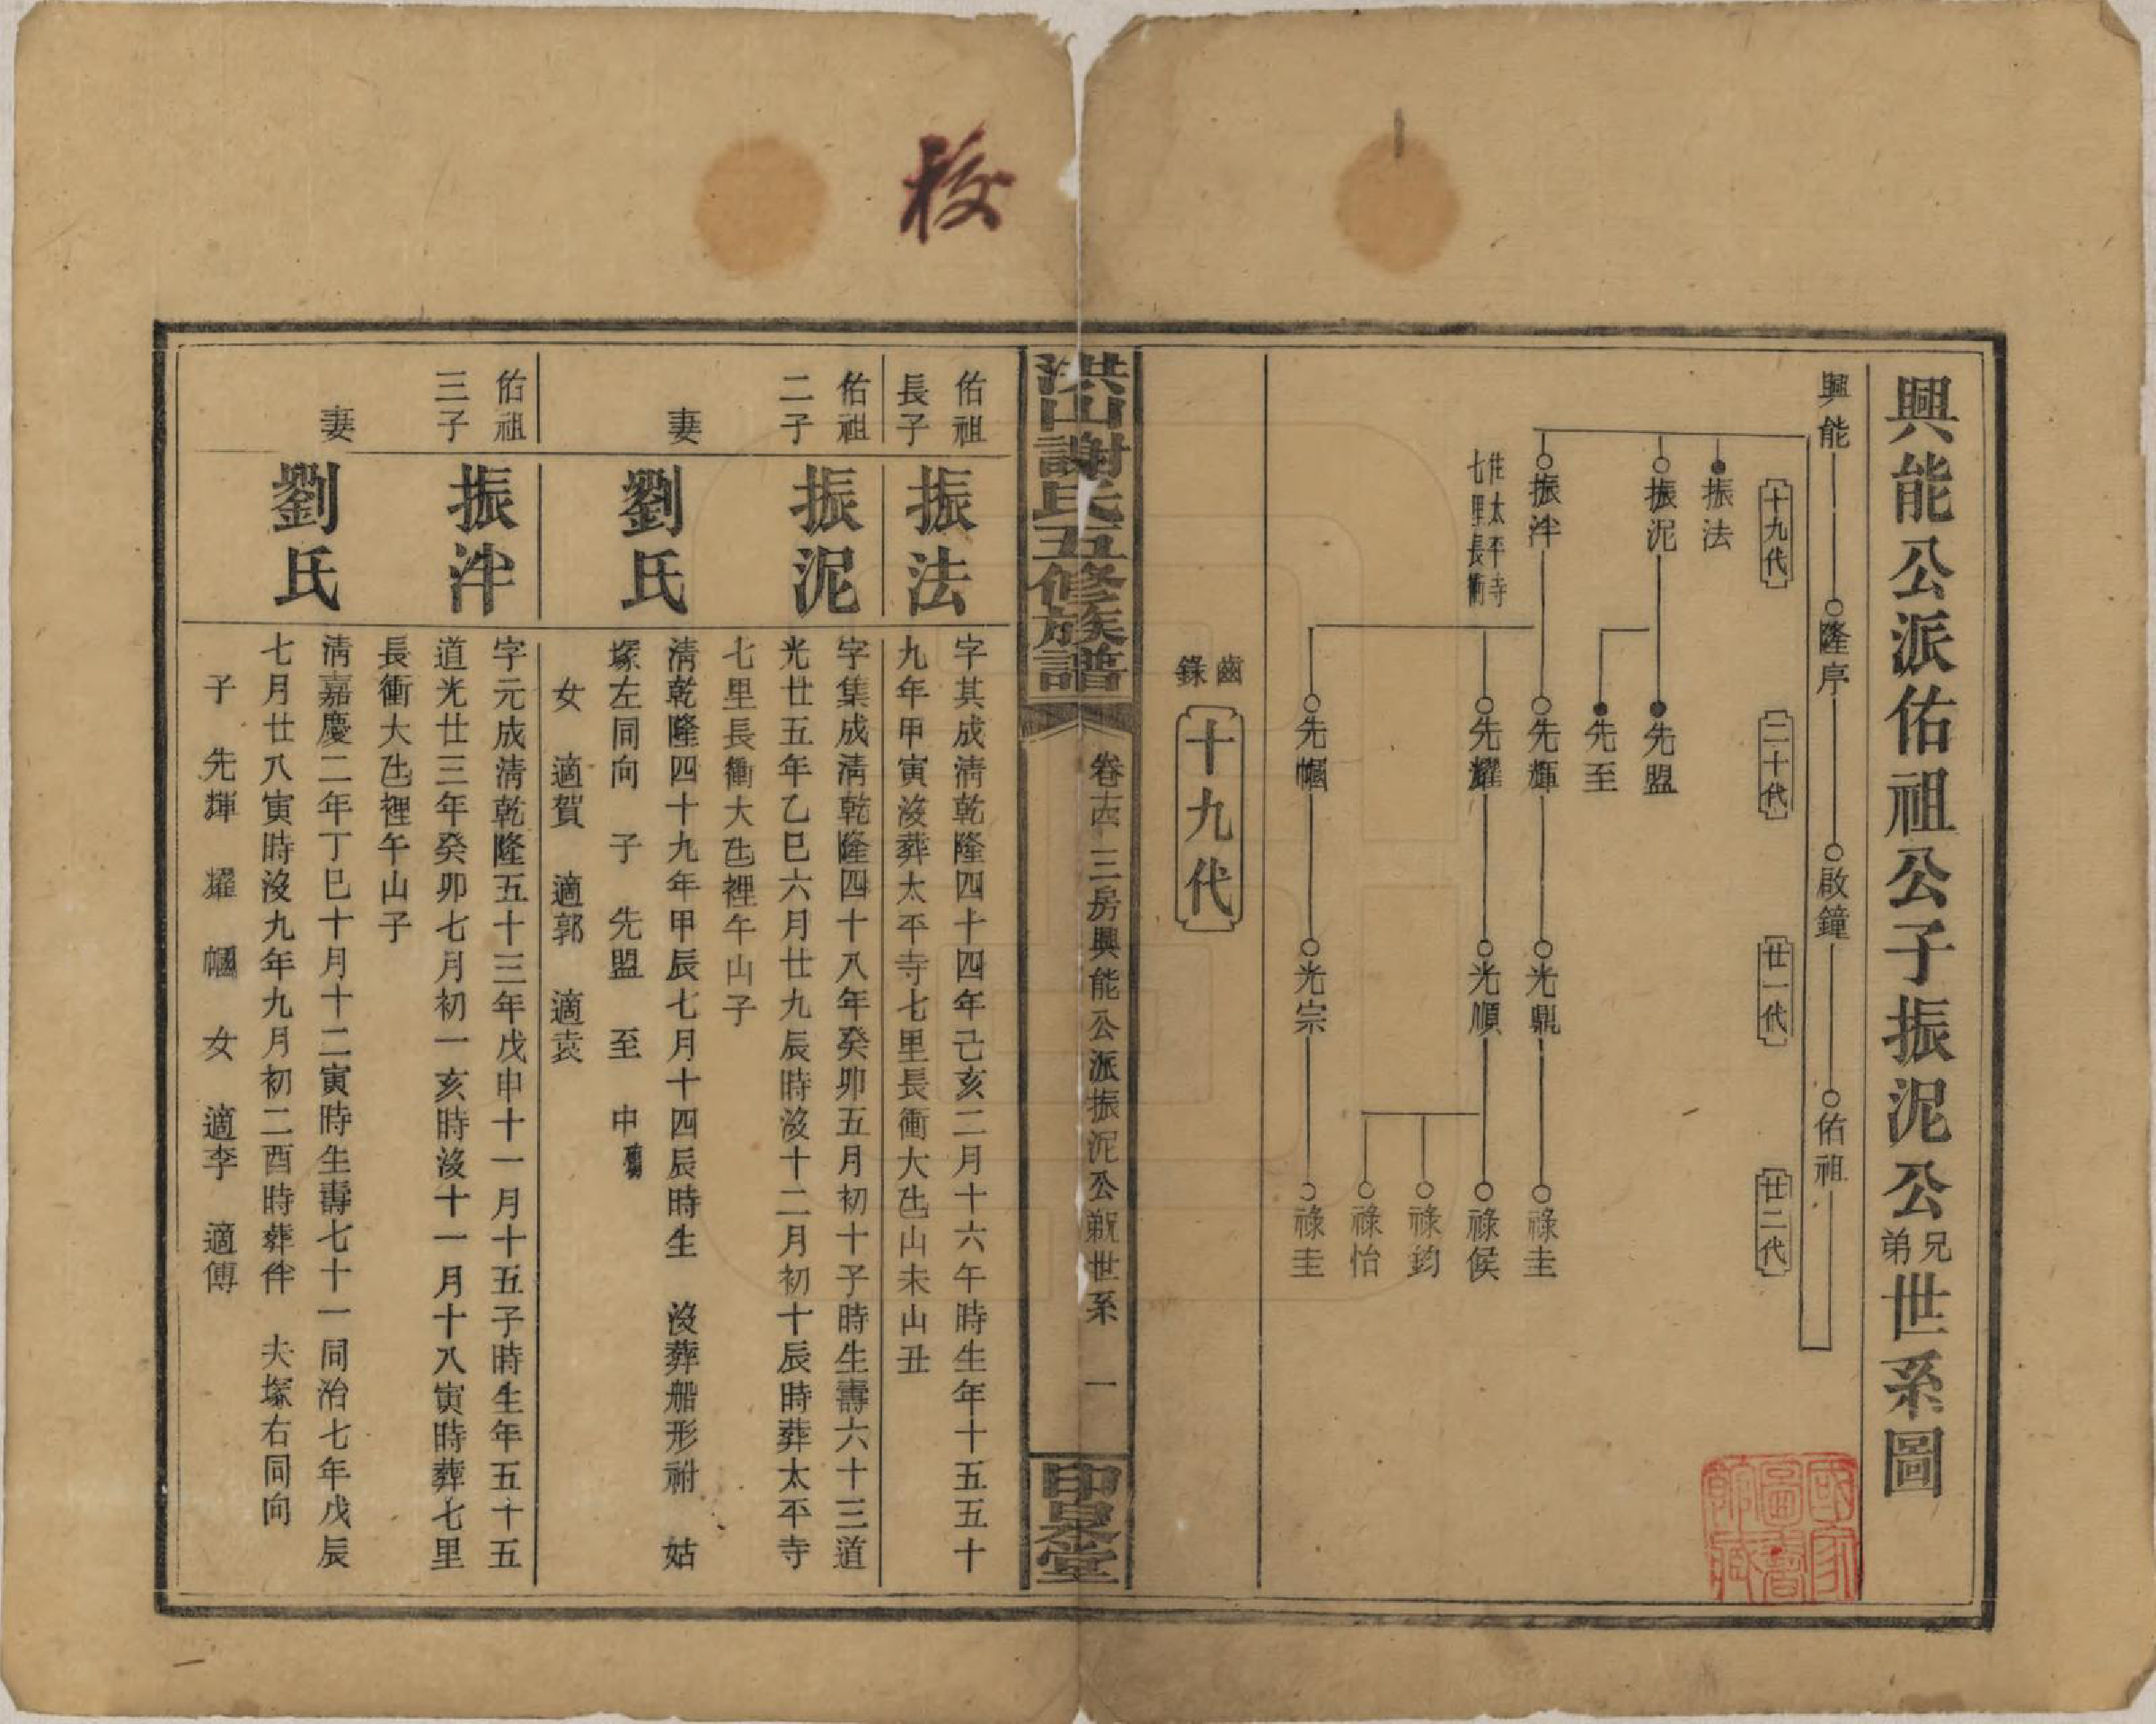 校
興能公派佑祖公子振泥公兄弟世系圖
興能 隆序 啟鐘 佑祖
十九代 二十代 廿一代 廿二代
振法
振泥 先盟
先至
振泮 先輝 光鼎 祿圭
住太平寺七里長衝
先耀 光順 祿候
祿鈞
祿怡
先幗 光宗 祿圭
國家圖書館藏
齒錄
十九代
洪山謝氏五修族譜 卷 三房興能公派振泥公 世系 一 印泉堂
佑祖長子 振法 字其成清乾隆四十四年己亥二月十六午時生年十五五十
九年甲寅沒葬太平寺七里長衝大 山未山丑
佑祖二子 振泥 字集成清乾隆四十八年癸卯五月初十子時生壽六十三道
光廿五年乙巳六月廿九辰時沒十二月初十辰時葬太平寺
七里長衝大 裡午山子
妻 劉氏 清乾隆四十九年甲辰七月十四辰時生 沒葬船形祔 姑
塚左同向 子 先盟 至 申
女 適賀 適郭 適袁
佑祖三子 振泮 字元成清乾隆五十三年戊申十一月十五子時生年五十五
道光廿三年癸卯七月初一亥時沒十一月十八寅時葬七里
長衝大 裡午山子
妻 劉氏 清嘉慶二年丁巳十月十二寅時生壽七十一同治七年戊辰
七月廿八寅時沒九年九月初二酉時葬伴 夫塚右同向
子 先輝 耀 幗 女 適李 適傅